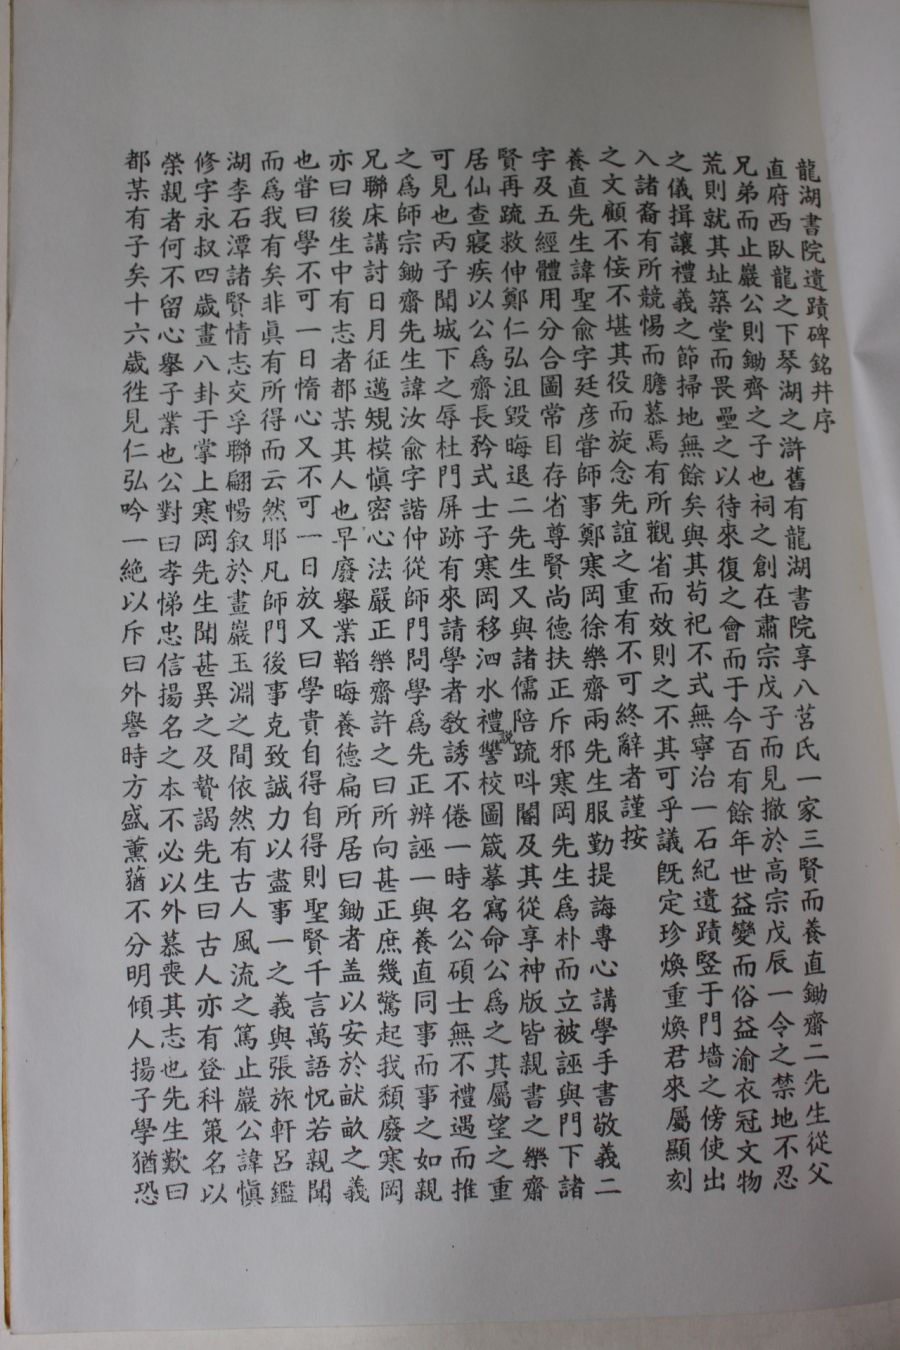 龍湖書院遺蹟碑銘幷序
直府西臥龍之下琴湖之滸舊有龍湖書院享八莒氏一家三賢而養直鋤齋二先生從父
兄弟而止巖公則鋤齊之子也祠之創在肅宗戊子而見撤於高宗戊辰一令之禁地不忍
荒則就其址築堂而畏壘之以待來復之會而于今百有餘年世益變而俗益渝衣冠文物
之儀揖讓禮義之節掃地無餘矣與其苟祀不式無寧治一石紀遺蹟竪于門墻之傍使出
入諸裔有所競惕而膽慕焉有所觀省而效則之不其可乎議旣定珍煥重煥君來屬顯刻
之文顧不侫不堪其役而旋念先誼之重有不可終辭者謹按
養直先生諱聖兪字廷彦甞師事鄭寒岡徐樂齋兩先生服勤提誨專心講學手書敬義二
字及五經體用分合圖常目存省尊賢尚德扶正斥邪寒岡先生爲朴而立被誣與門下諸
賢再疏救仲鄭仁弘沮毀晦退二先生又與諸儒陪疏呌閽及其從享神版皆親書之樂齋
居仙查寢疾以公爲齋長矜式士子寒岡移泗水禮說讐校圖箴摹寫命公爲之其屬望之重
可見也丙子聞城下之辱杜門屏跡有來請學者敎誘不倦一時名公碩士無不禮遇而推
之爲師宗鋤齋先生諱汝兪字諧仲從師門問學爲先正辨誣一與養直同事而事之如親
兄聯床講討日月征邁䂓模愼密心法嚴正樂齋許之曰所向甚正庶幾驚起我頹廢寒岡
亦曰後生中有志者都某其人也早廢擧業韜晦養德扁所居曰鋤者盖以安於畎畝之義
也甞曰學不可一日惰心又不可一日放又曰學貴自得自得則聖賢千言萬語怳若親聞
而爲我有矣非眞有所得而云然耶凡師門後事克致誠力以盡事一之義與張旅軒呂鑑
湖李石潭諸賢情志交孚聯翩暢叙於畫巖玉淵之間依然有古人風流之篤止巖公諱愼
修字永叔四歲畫八卦于掌上寒岡先生聞甚異之及贄謁先生曰古人亦有登科策名以
榮親者何不留心擧子業也公對曰孝悌忠信揚名之本不必以外慕喪其志也先生歎曰
都某有子矣十六歲徃見仁弘吟一絶以斥曰外譽時方盛薰蕕不分明傾人揚子學猶恐